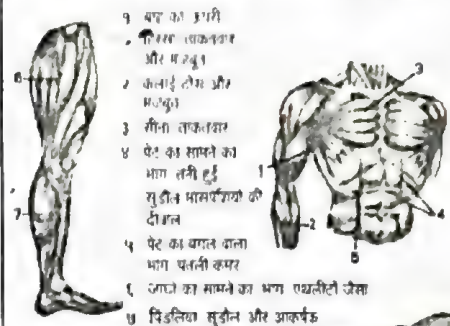 १ बाह का ऊपरी
हिस्सा ताकतवार
और मजबूत
२ कलाई ठोस और
मजबूत
३ सीना ताकतवार
४ पेट का सामने का
भाग तनी हुई
सुडौल मांसपेशियों की
दीवाल
५ पेट का बगल वाला
भाग पतली कमर
६ जांघो का सामने का भाग एथलीटों जैसा
७ पिंडलिया सुडौल और आकर्षक
6
7
1
2
3
4
5